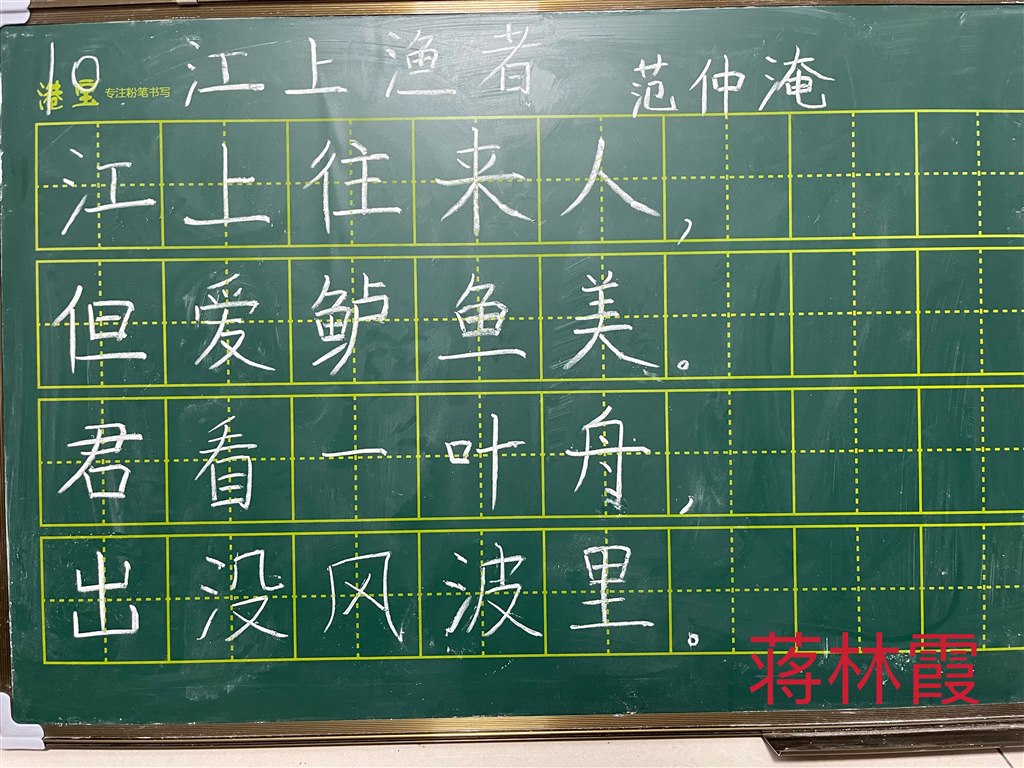 10 江上渔者 范仲淹
港宝 专注粉笔书写
江上往来人，
但爱鲈鱼美。
君看一叶舟，
出没风波里。
蒋林霞